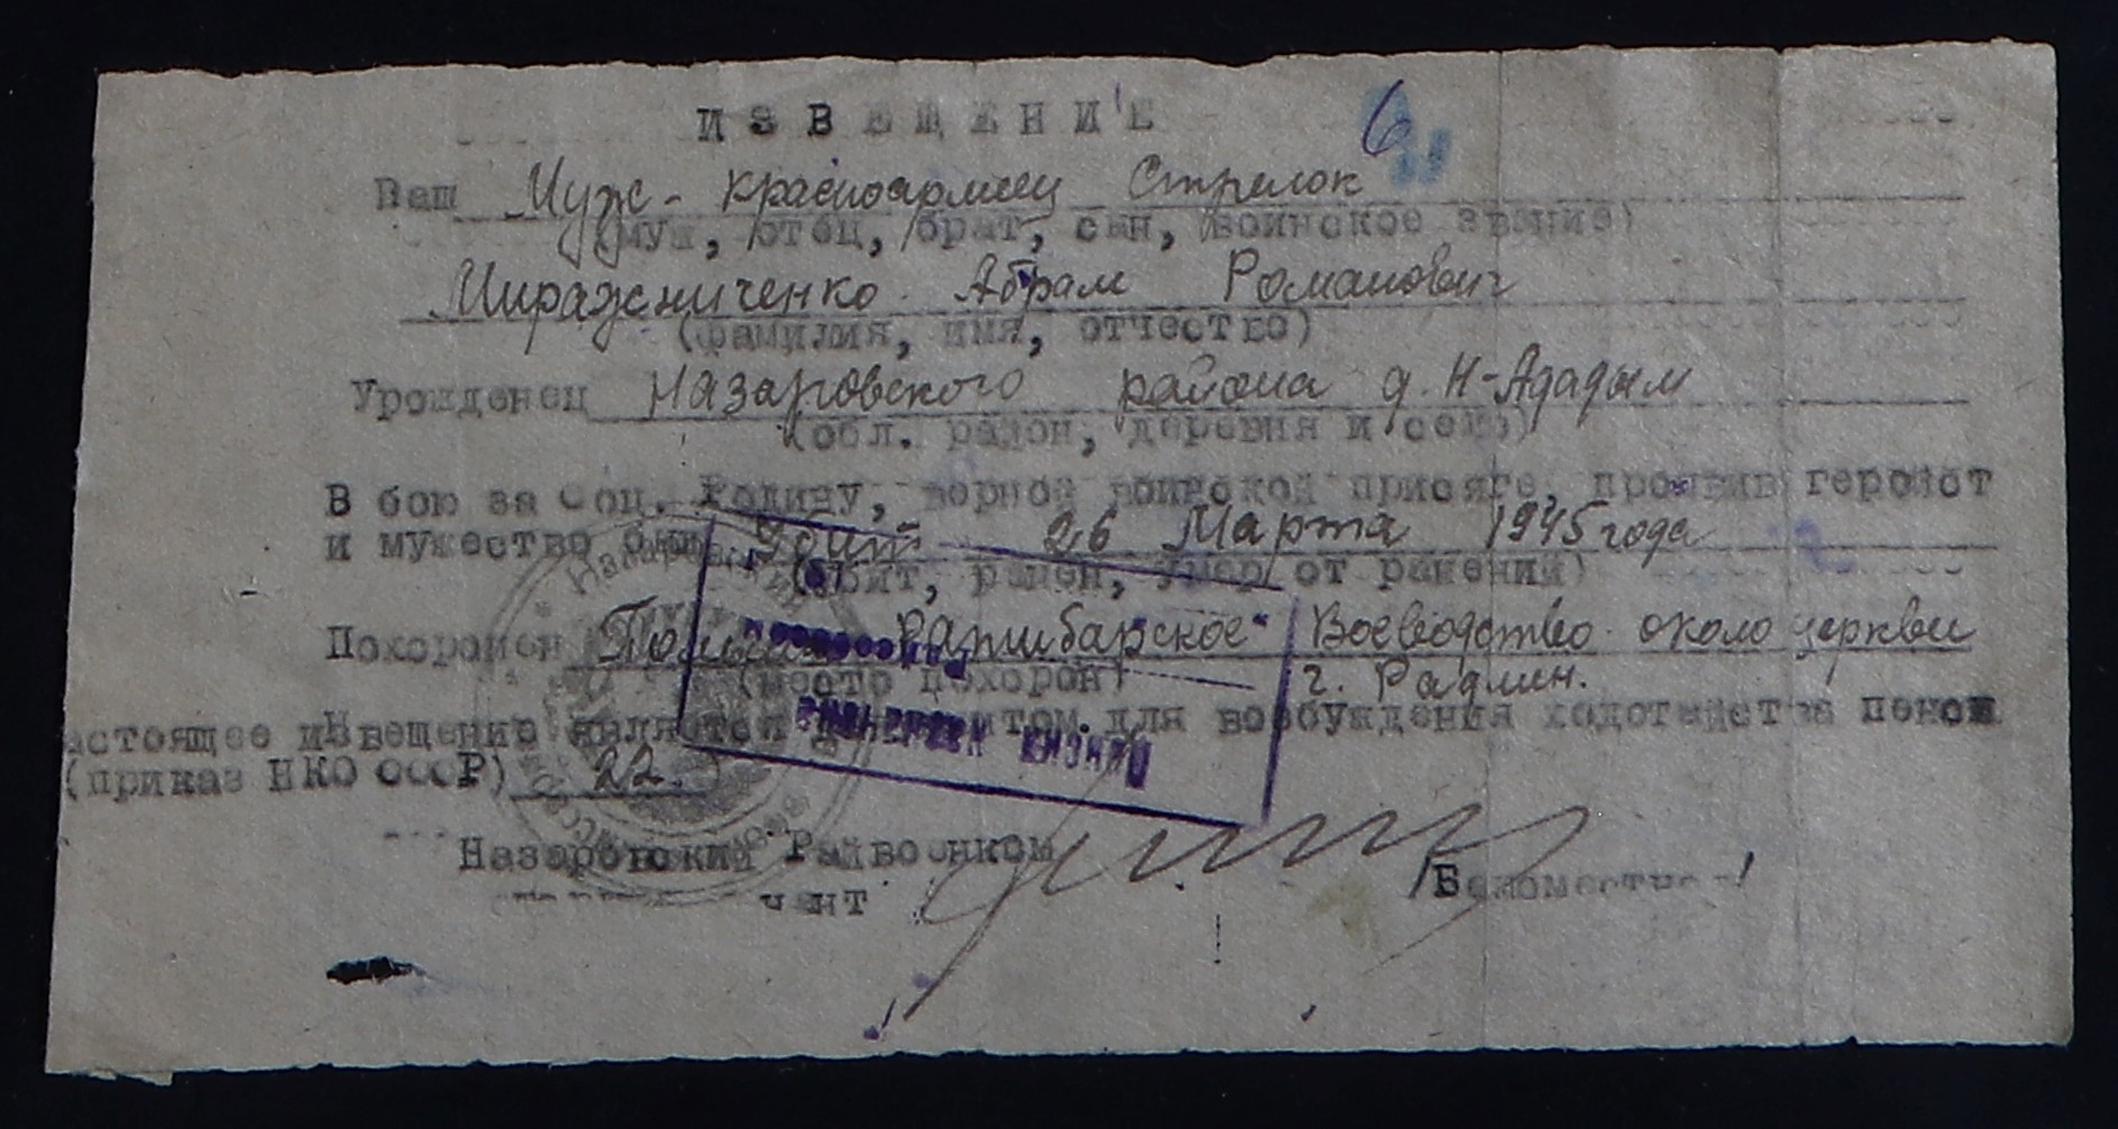 ИЗВЕЩЕНИЕ 6
Ваш Муж - красноармеец Стрелок
(муж, отец, брат, сын, воинское звание)
Миражниченко Абрам Романович
(фамилия, имя, отчество)
Урожденец Назаровского района д. Н-Ададым
(обл. район, деревня и село)
В бою за Соц. Родину, верной воинской присяге, проявив геройст
и мужество был Убит 26 Марта 1945 года
(убит, ранен, умер от ранений)
Похоронен Польша "Ратибарское" Воеводство около церкви
(место похорон) г. Радлин.
астоящее извещение является документом для возбуждения ходотайства пенсии
(приказ НКО СССР) 22.
Пенсия назначена
Назаровский Райвоенком
/Беломестно /